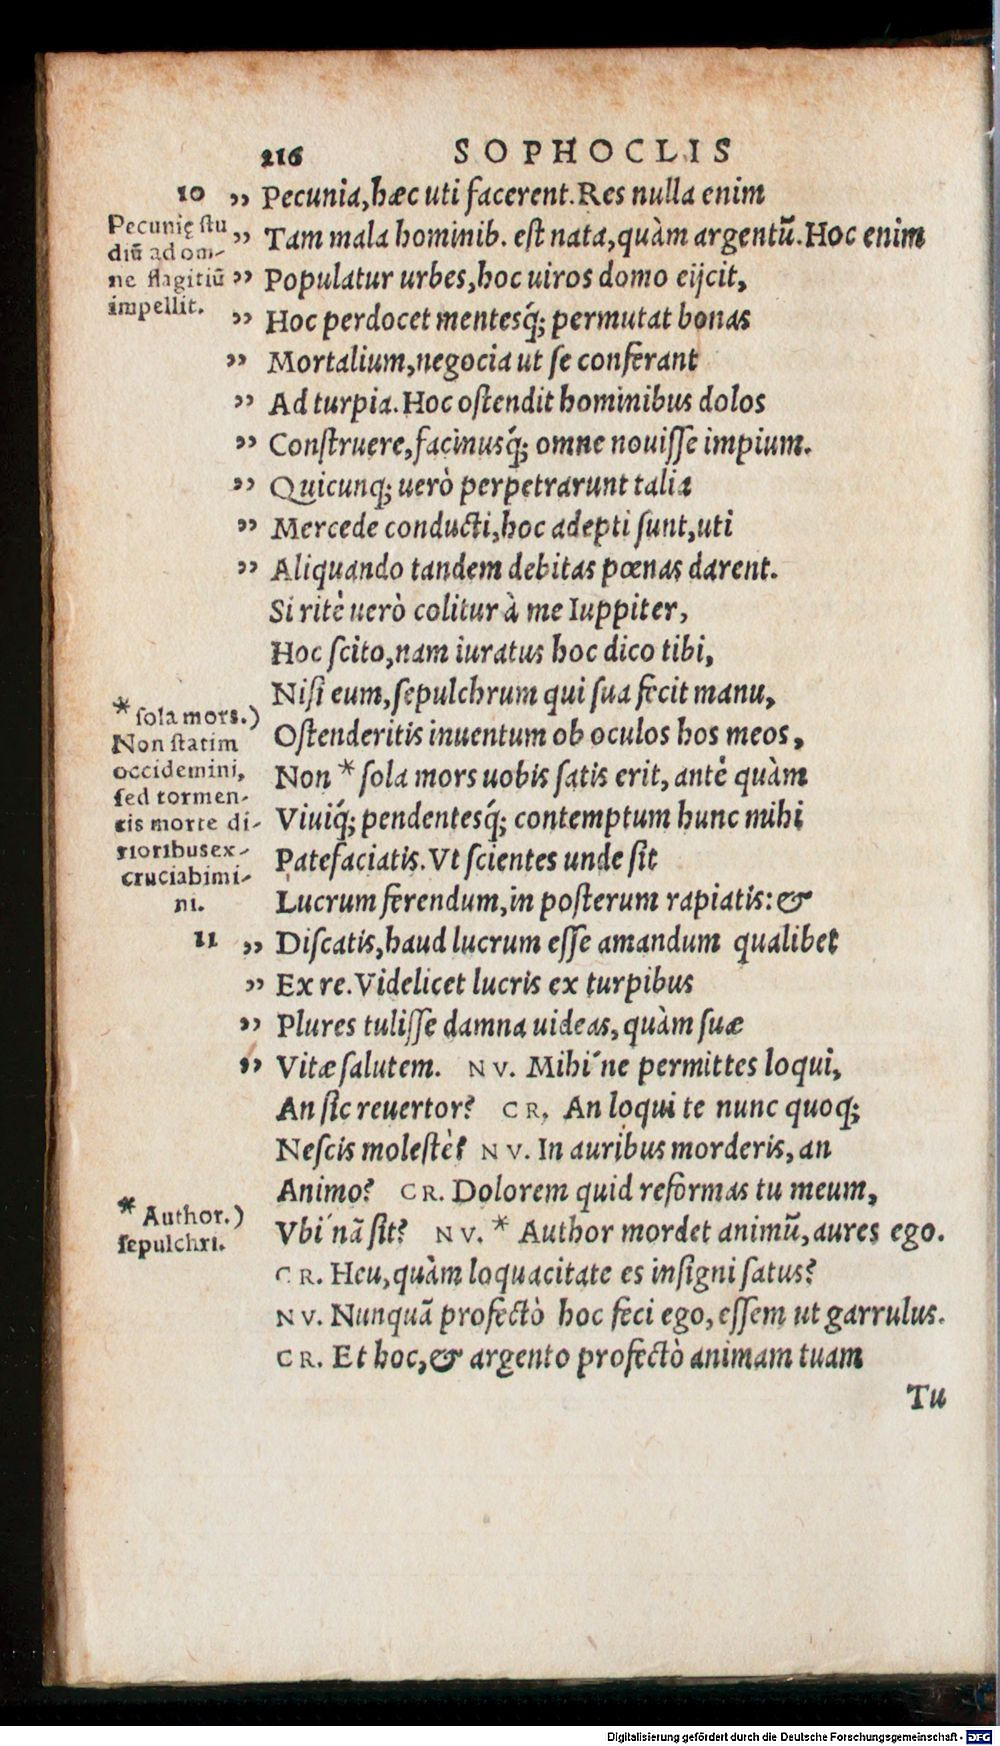 216 SOPHOCLIS
10 „ Pecunia, hæc uti facerent. Res nulla enim
„ Tam mala hominib. eſt nata, quàm argentũ. Hoc enim
„ Populatur urbes, hoc uiros domo eijcit,
„ Hoc perdocet mentesq́; permutat bonas
„ Mortalium, negocia ut ſe conferant
„ Ad turpia. Hoc oſtendit hominibus dolos
„ Conſtruere, facinusq́; omne nouiſſe impium.
„ Quicunq; uerò perpetrarunt talia
„ Mercede conducti, hoc adepti ſunt, uti
„ Aliquando tandem debitas pœnas darent.
Si ritè uerò colitur à me Iuppiter,
Hoc ſcito, nam iuratus hoc dico tibi,
Niſi eum, ſepulchrum qui ſua fecit manu,
Oſtenderitis inuentum ob oculos hos meos,
Non * ſola mors uobis ſatis erit, antè quàm
Viuiq́; pendentesq́; contemptum hunc mihi
Patefaciatis. Vt ſcientes unde ſit
Lucrum ferendum, in poſterum rapiatis: &
11 „ Diſcatis, haud lucrum eſſe amandum qualibet
„ Ex re. Videlicet lucris ex turpibus
„ Plures tuliſſe damna uideas, quàm ſuæ
„ Vitæ ſalutem. NV. Mihi´ne permittes loqui,
An ſic reuertor? CR. An loqui te nunc quoq;
Neſcis moleſtè? NV. In auribus morderis, an
Animo? CR. Dolorem quid reformas tu meum,
Vbi´nã ſit? NV. * Author mordet animũ, aures ego.
CR. Heu, quàm loquacitate es inſigni ſatus?
NV. Nunquã profectò hoc feci ego, eſſem ut garrulus.
CR. Et hoc, & argento profectò animam tuam
Tu
Pecunię ſtu
diũ ad om-
ne flagitiũ
impellit.
* ſola mors.)
Non ſtatim
occidemini,
ſed tormen-
tis morte di-
rioribus ex-
cruciabimi-
ni.
* Author.)
ſepulchri.
Digitalisierung gefördert durch die Deutsche Forschungsgemeinschaft - DFG